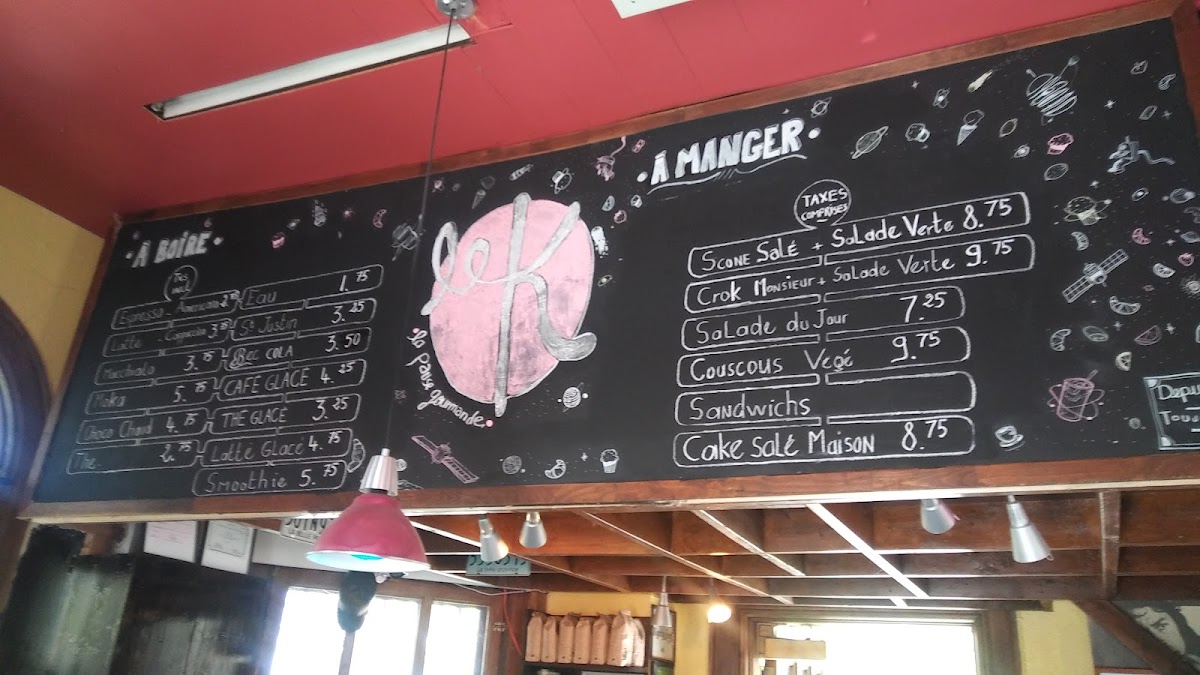 À BOIRE
Espresso - Americano
Latte - Capuccino
Macchiato 3.75
Moka 5.75
Choco Chaud 4.75
Thé 2.75
Eau 1.75
St Justin 3.25
Bec COLA 3.50
CAFÉ GLACÉ 4.25
THÉ GLACÉ 3.25
Latté Glacé 4.75
Smoothie 5.75
le K
la pause gourmande.
À MANGER
TAXES
COMPRISES
SCONE SALÉ + SALADE VERTE 8.75
CROK MONSIEUR + SALADE VERTE 9.75
SALADE DU JOUR 7.25
COUSCOUS VÉGÉ 9.75
SANDWICHS
CAKE SALÉ MAISON 8.75
Depuis